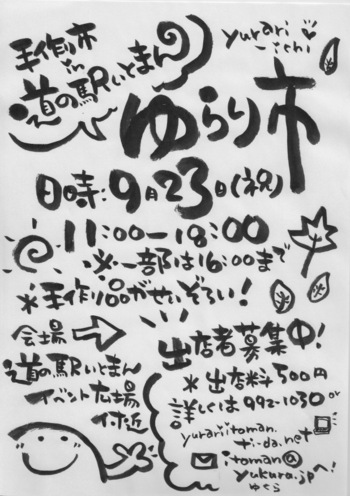 手作り市
in
道の駅いとまん
yurari
ichi
ゆらり市
日時:9月23日(祝)
11:00-18:00
※一部は16:00まで
*手作り品がせいぞろい!
会場
道の駅いとまん
イベント広場
付近
出店者募集中!
*出店料500円
詳しくは992-1030 or
yurariitoman.
ti-da.net
itoman@
yukura.jpへ!
ゆくら